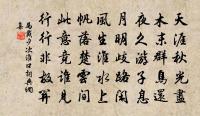 天涯秋光盡
木末群鳥還
夜久遊子息
月明岐路閒
風生淮水上
帆落楚雲間
此意竟誰見
行行非故關
馬戴夕次淮口